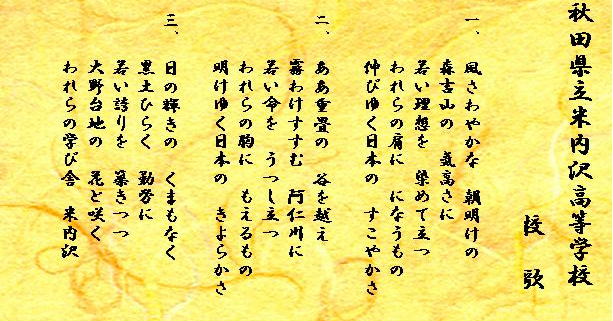 秋田県立米内沢高等学校
校歌
一、
風さわやかな 朝明けの
森吉山の 気高さに
若い理想を 染めて立つ
われらの肩に になうもの
伸びゆく日本の すこやかさ
二、
ああ重畳の 谷を越え
霧わけすすむ 阿仁川に
若い命を うつし立つ
われらの胸に もえるもの
明けゆく日本の きよらかさ
三、
日の輝きの くまもなく
黒土ひらく 勤労に
若い誇りを 築きつつ
大野台地の 花と咲く
われらの学び舎 米内沢